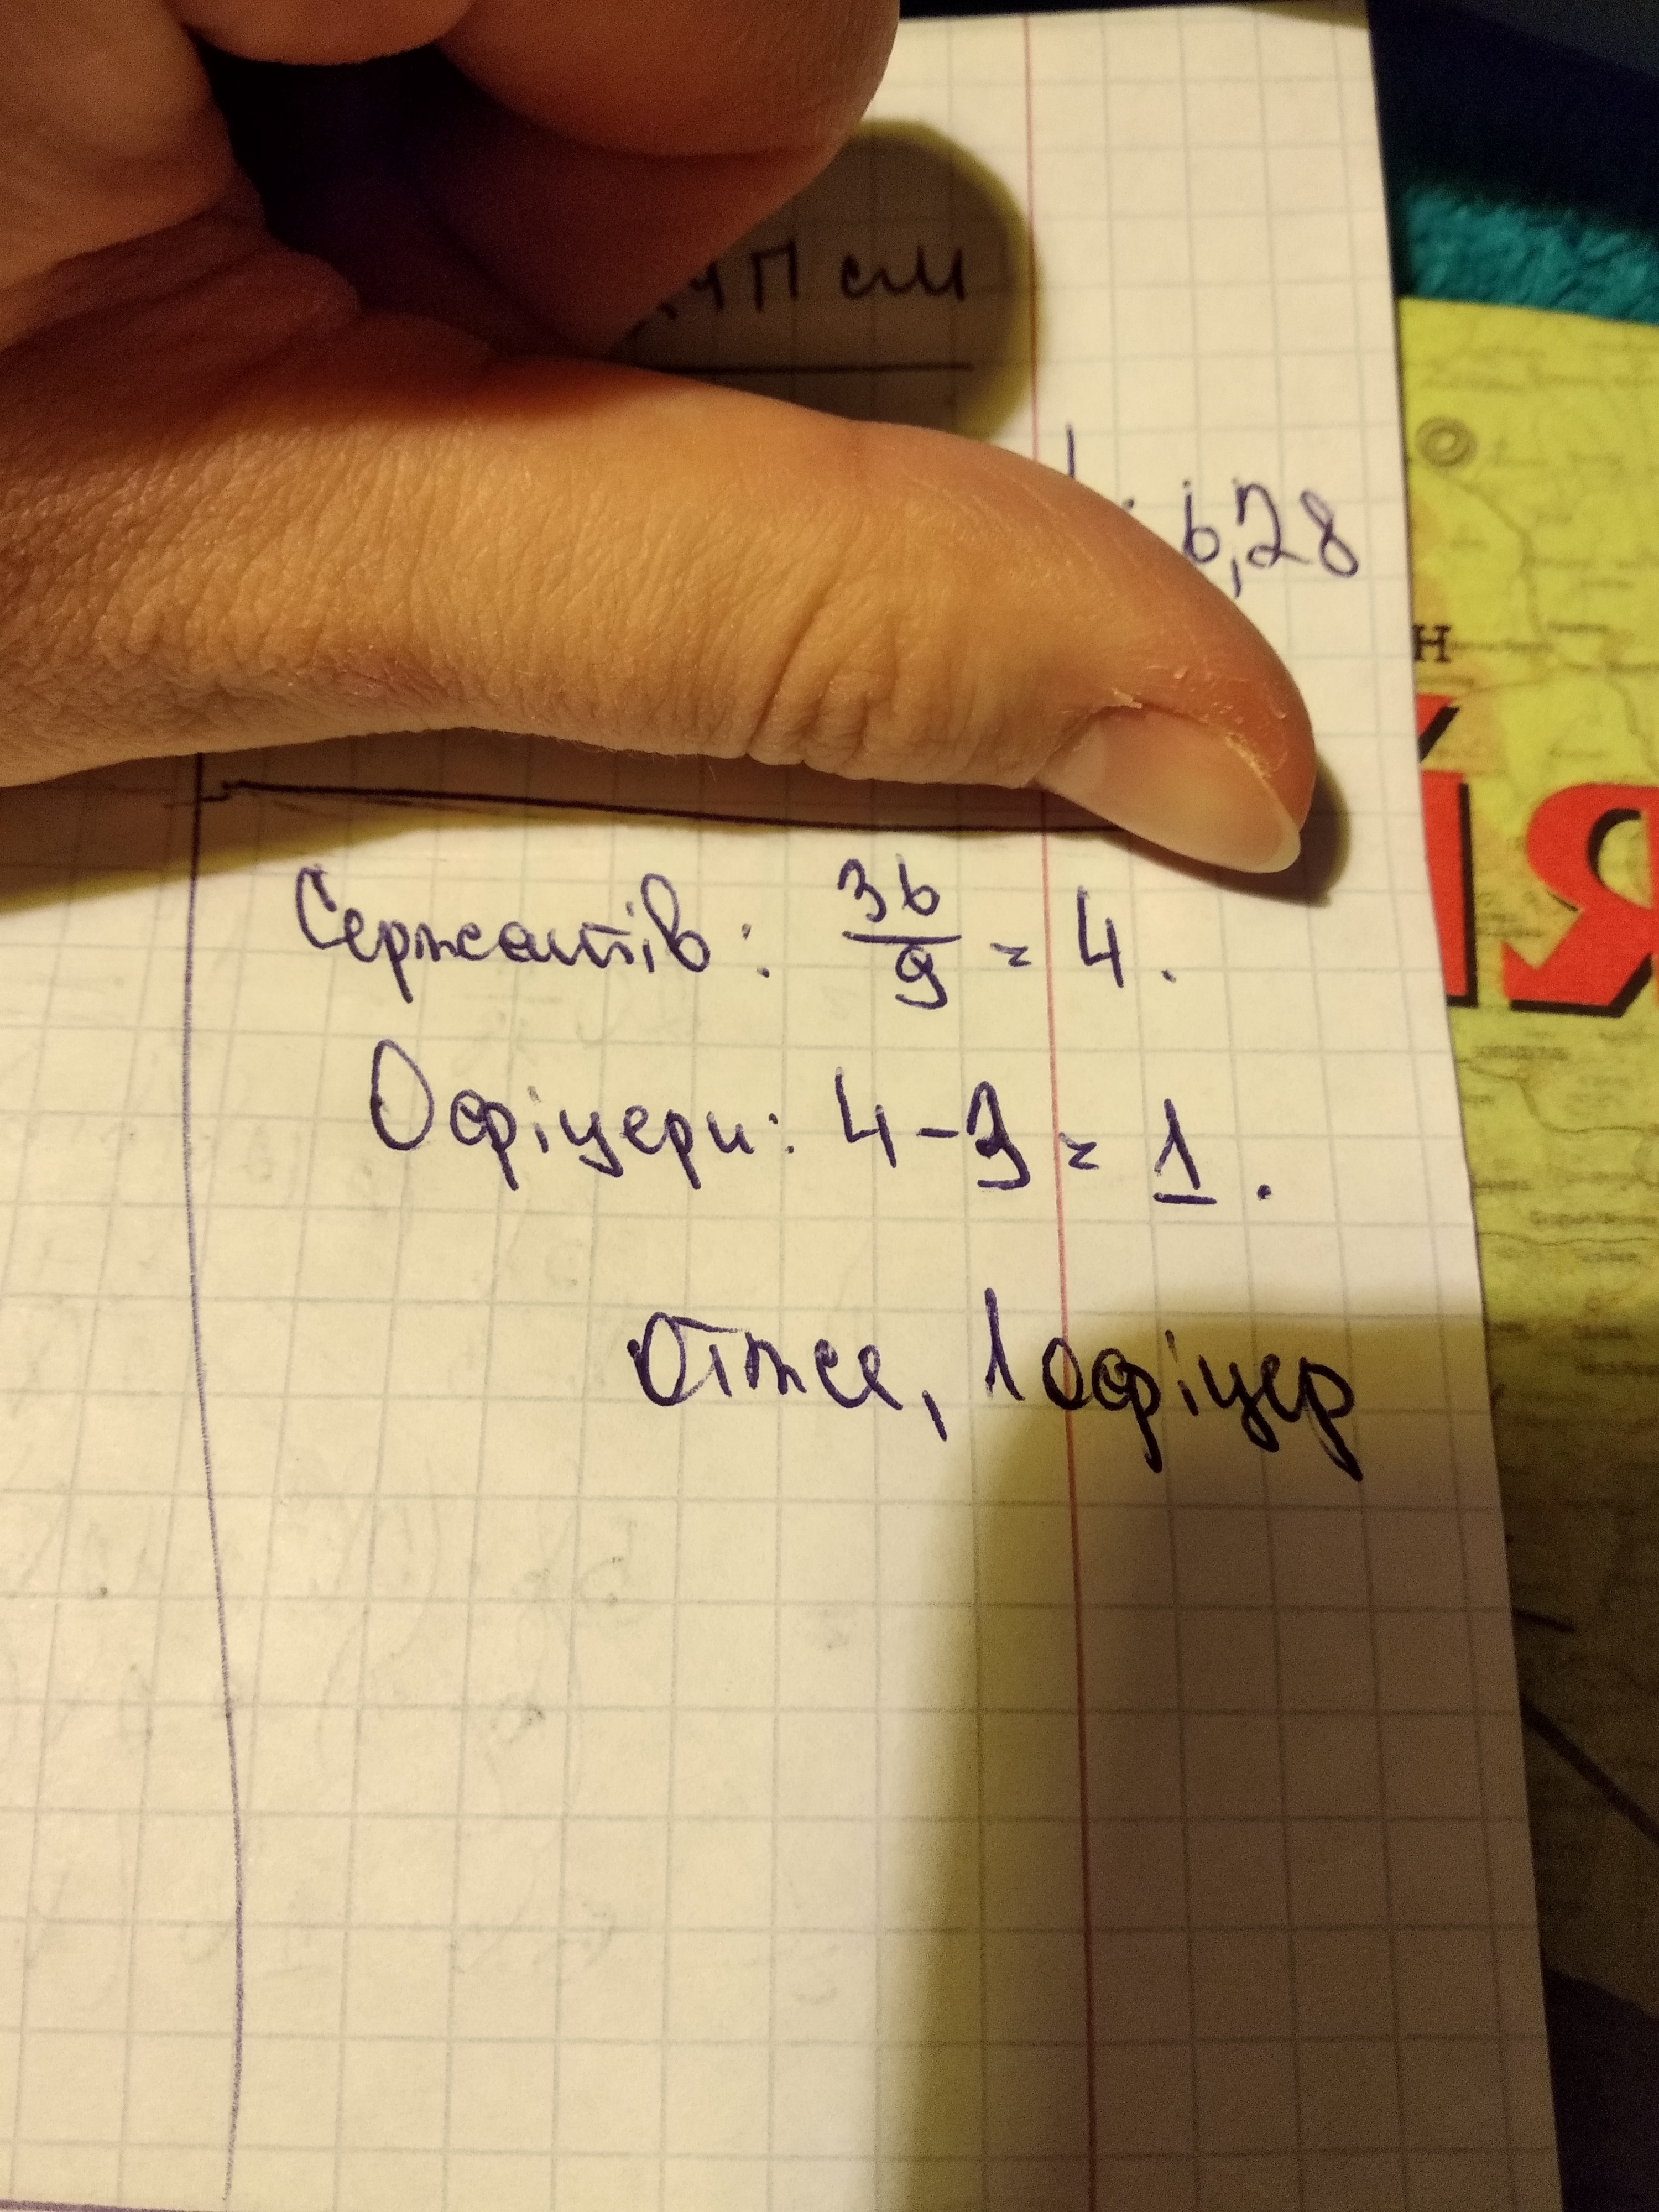 П см
6,28
Н
Я
Сержантів: 36/9 = 4.
Офіцери: 4 - 3 = 1.
Отже, 1 офіцер